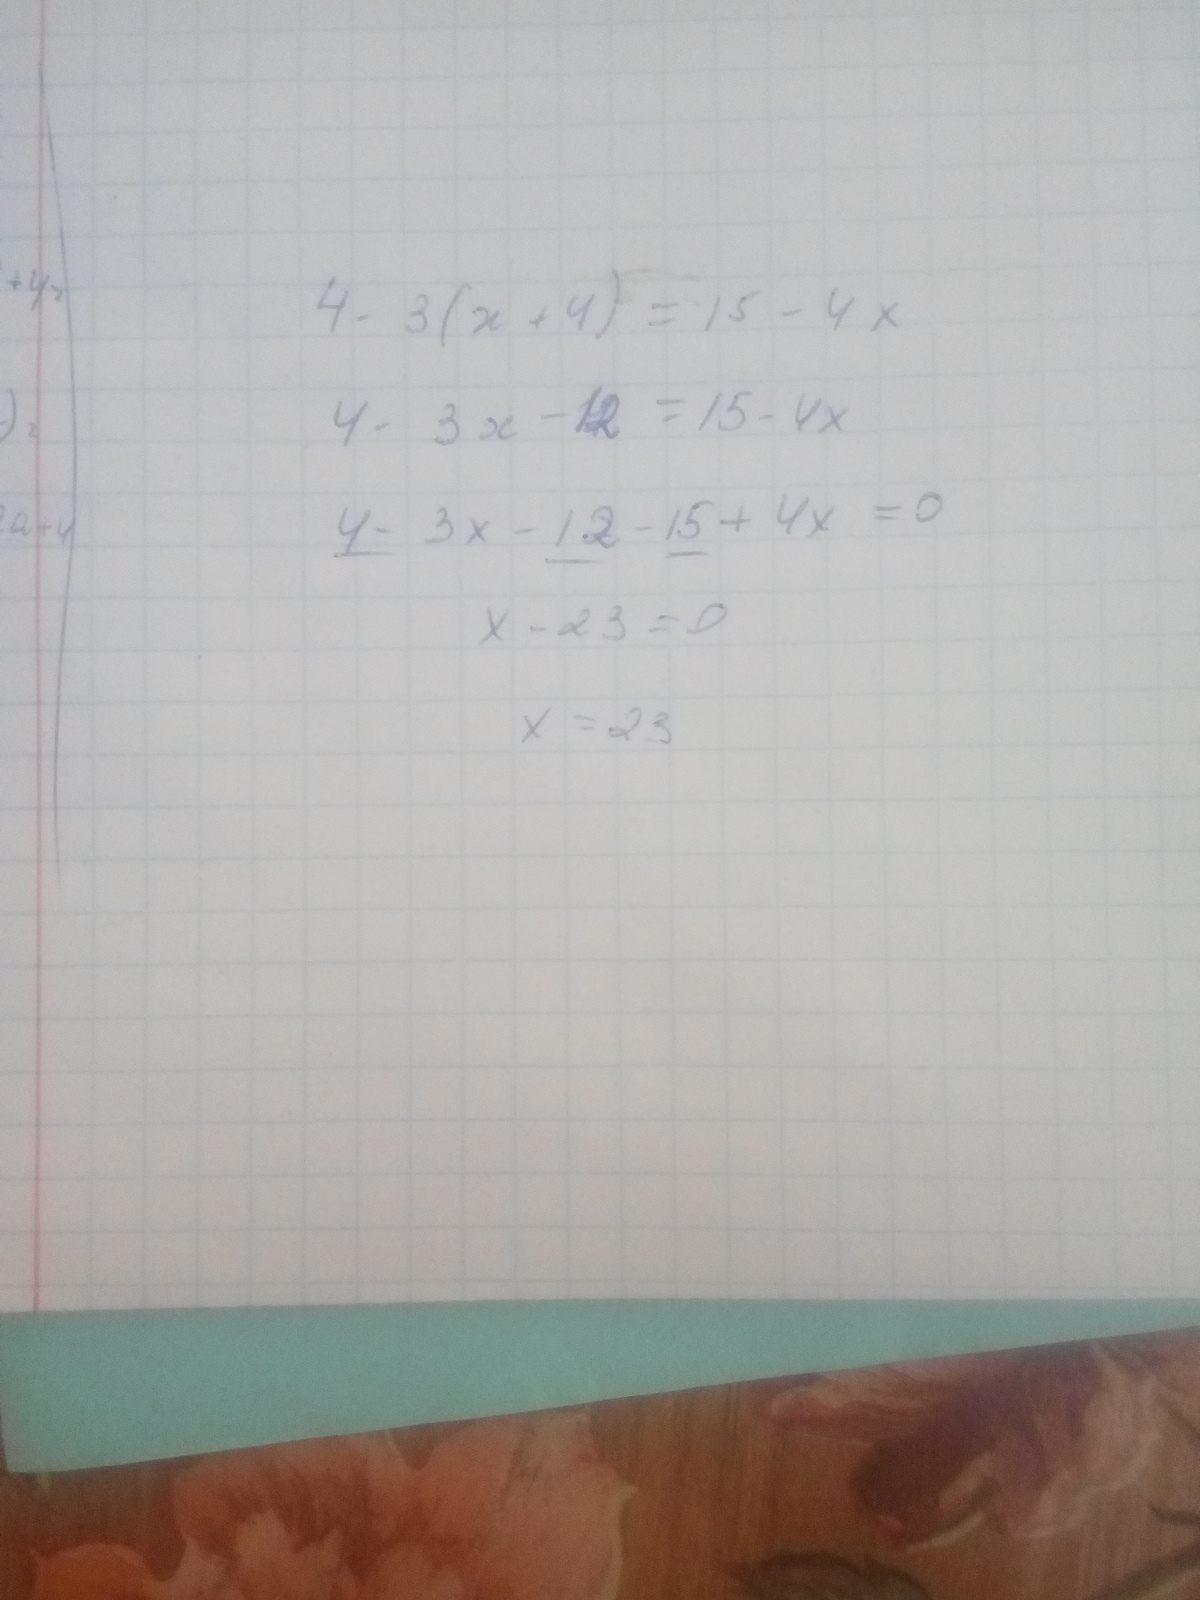 4 - 3(x + 4) = 15 - 4x
4 - 3x - 12 = 15 - 4x
4 - 3x - 12 - 15 + 4x = 0
x - 23 = 0
x = 23
2a+4